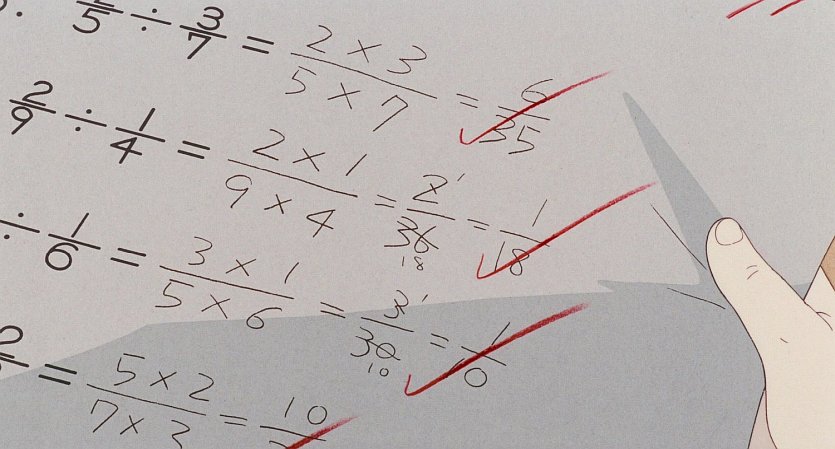 2/5 ÷ 3/7 = (2 × 3)/(5 × 7) = 6/35
2/9 ÷ 1/4 = (2 × 1)/(9 × 4) = 2 1/36 18 = 1/18
÷ 1/6 = (3 × 1)/(5 × 6) = 3 1/30 10 = 1/10
2 = (5 × 2)/(7 × 3) = 10